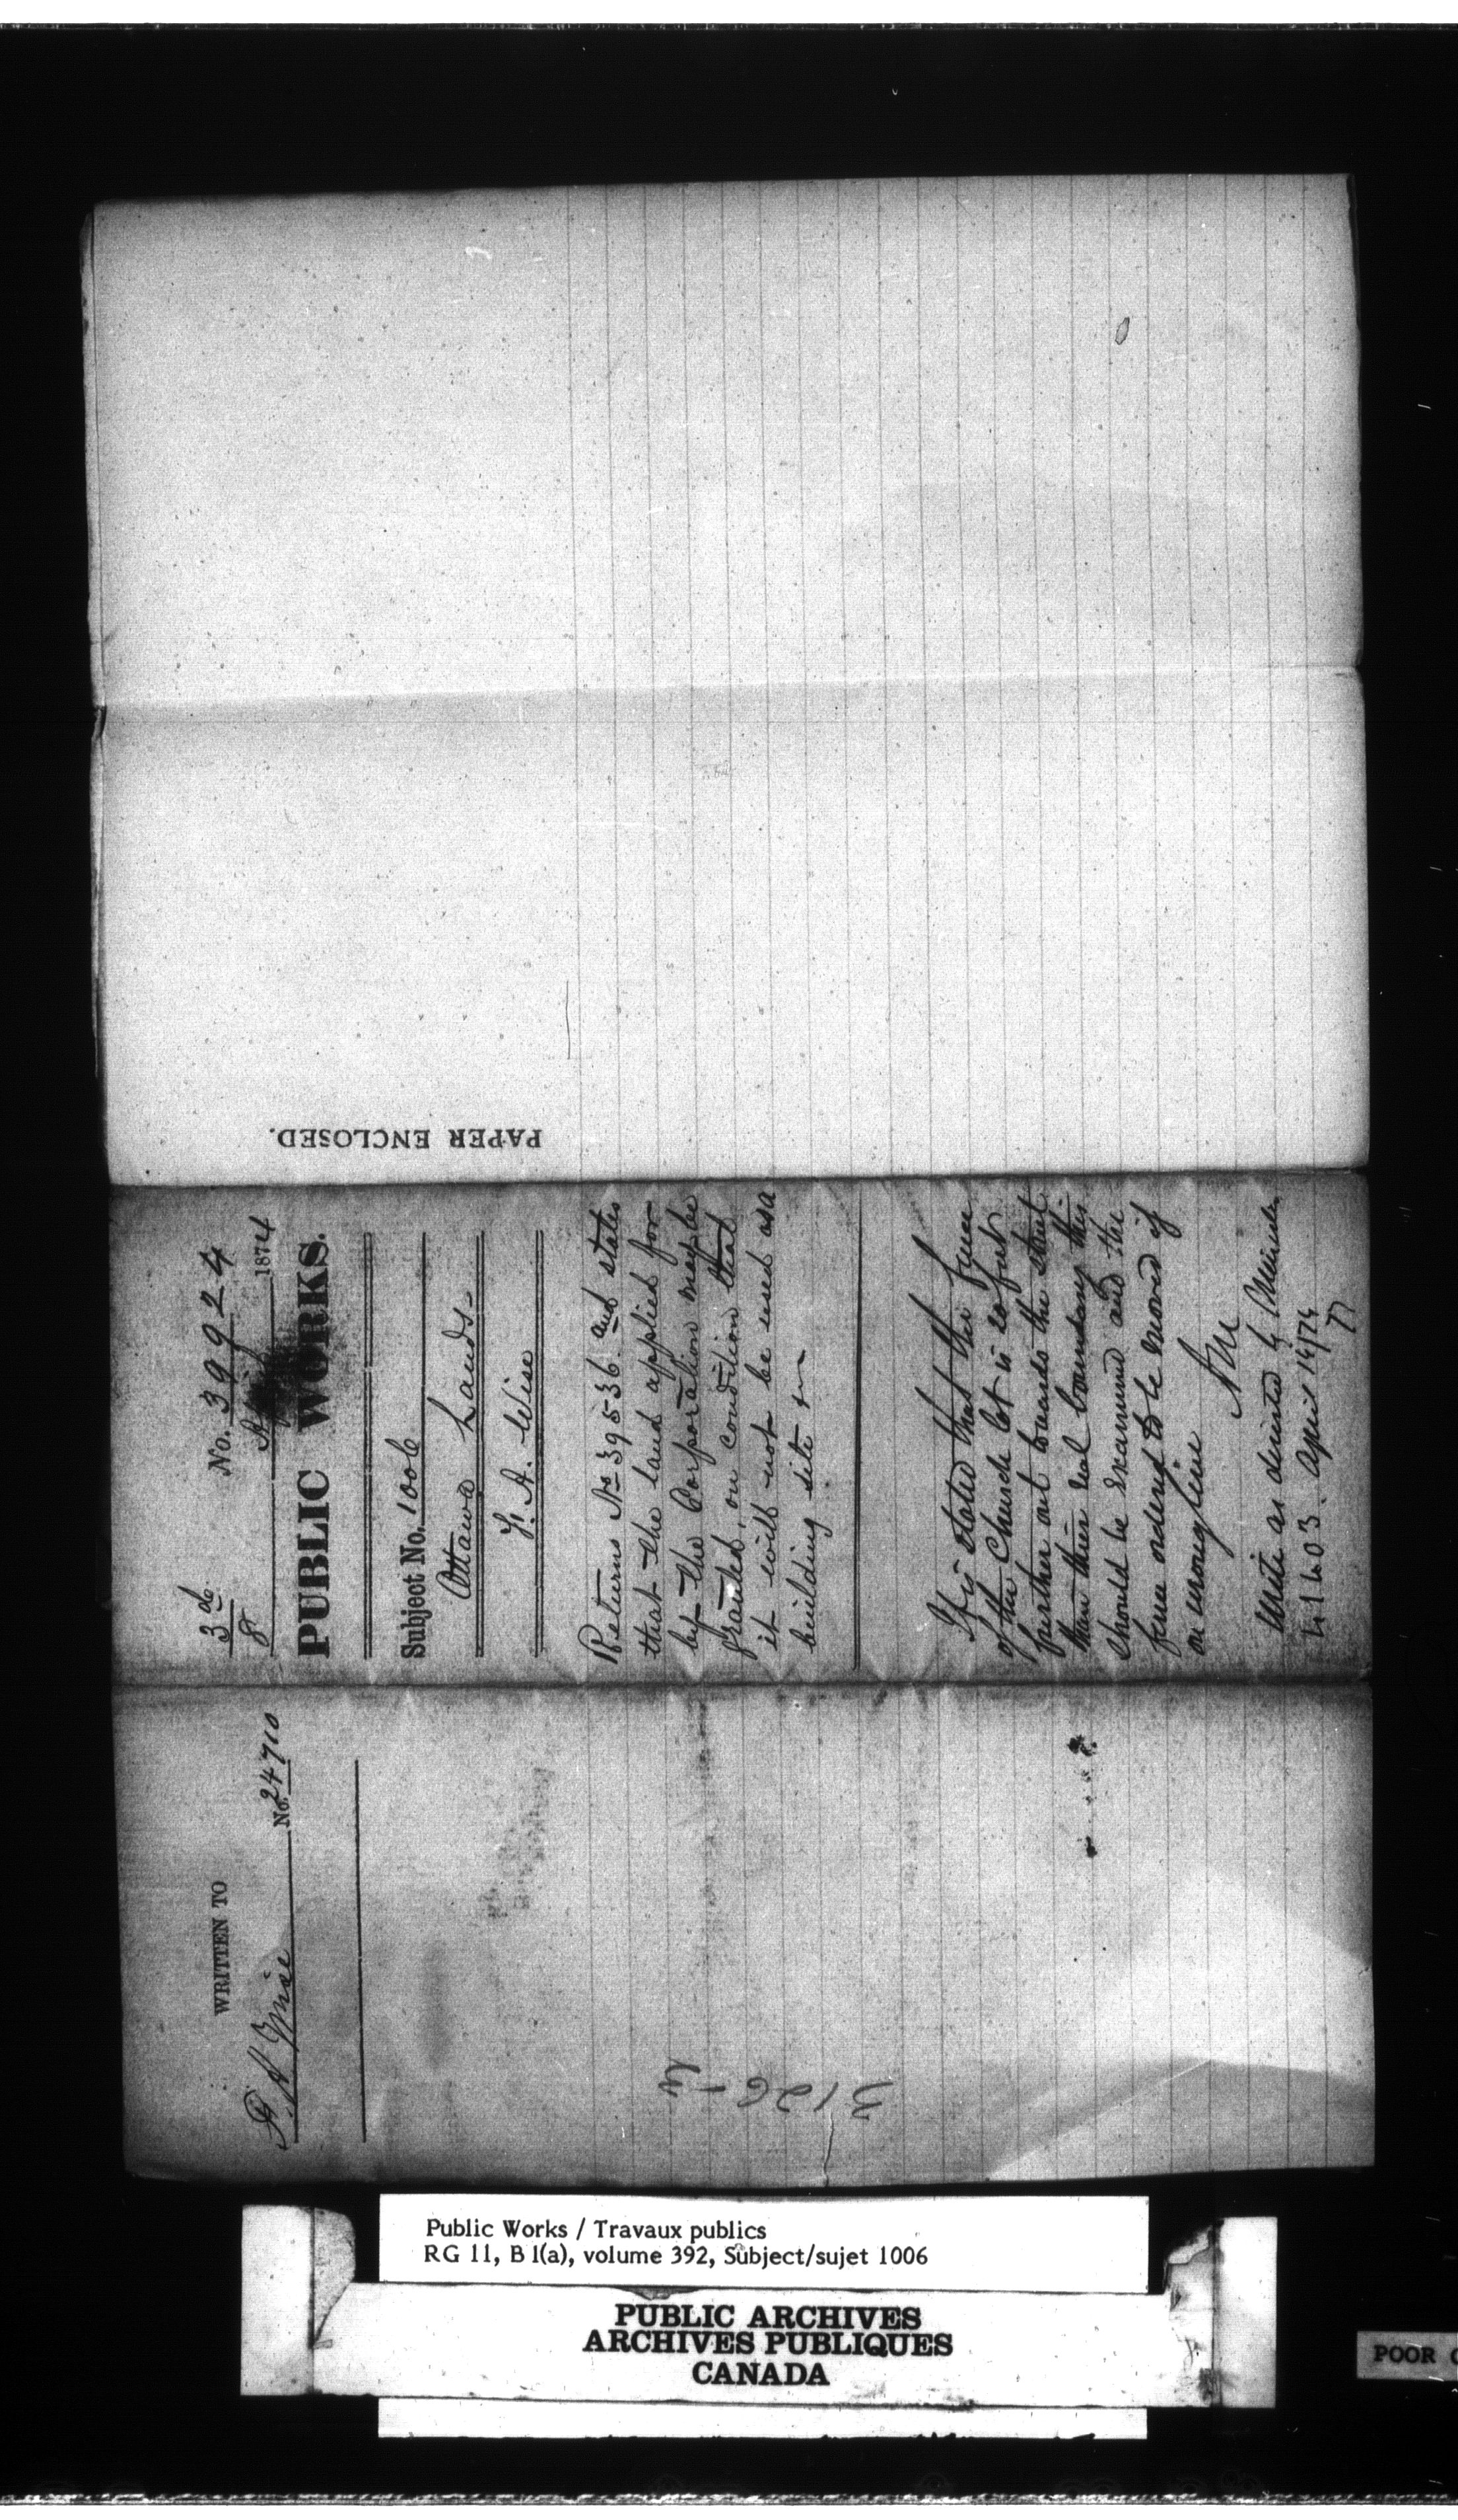 3rd
8
No. 39924
April 1874
PUBLIC WORKS.
Subject No. 1006
Ottawa Lands
F. A. Wise
Returns No 39536 and states
that the land applied for
by the Corporation may be
granted, on condition that
it will not be used as a
building site
It is stated that the fence
of the Church lot is 20 feet
further out towards the street
than their real boundary this
should be examined and the
fence ordered to be moved if
on wrong line
Write as directed by Minister
April 14/74
WRITTEN TO
F. A. Wise No. 24710
3126-
PAPER ENCLOSED.
Public Works / Travaux publics
RG 11, B 1(a), volume 392, Subject/sujet 1006
PUBLIC ARCHIVES
ARCHIVES PUBLIQUES
CANADA
POOR